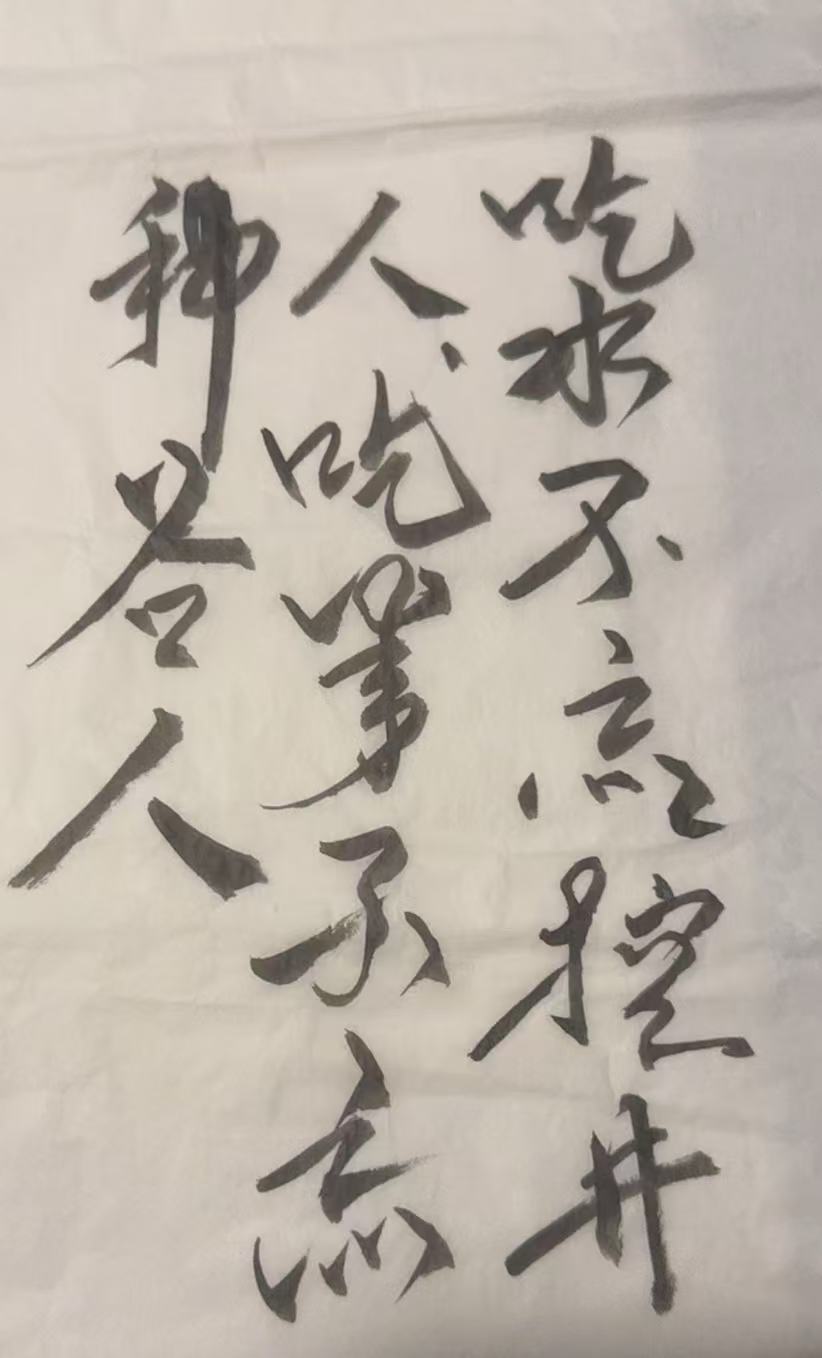 吃水不忘挖井
人、吃不忘
种谷人